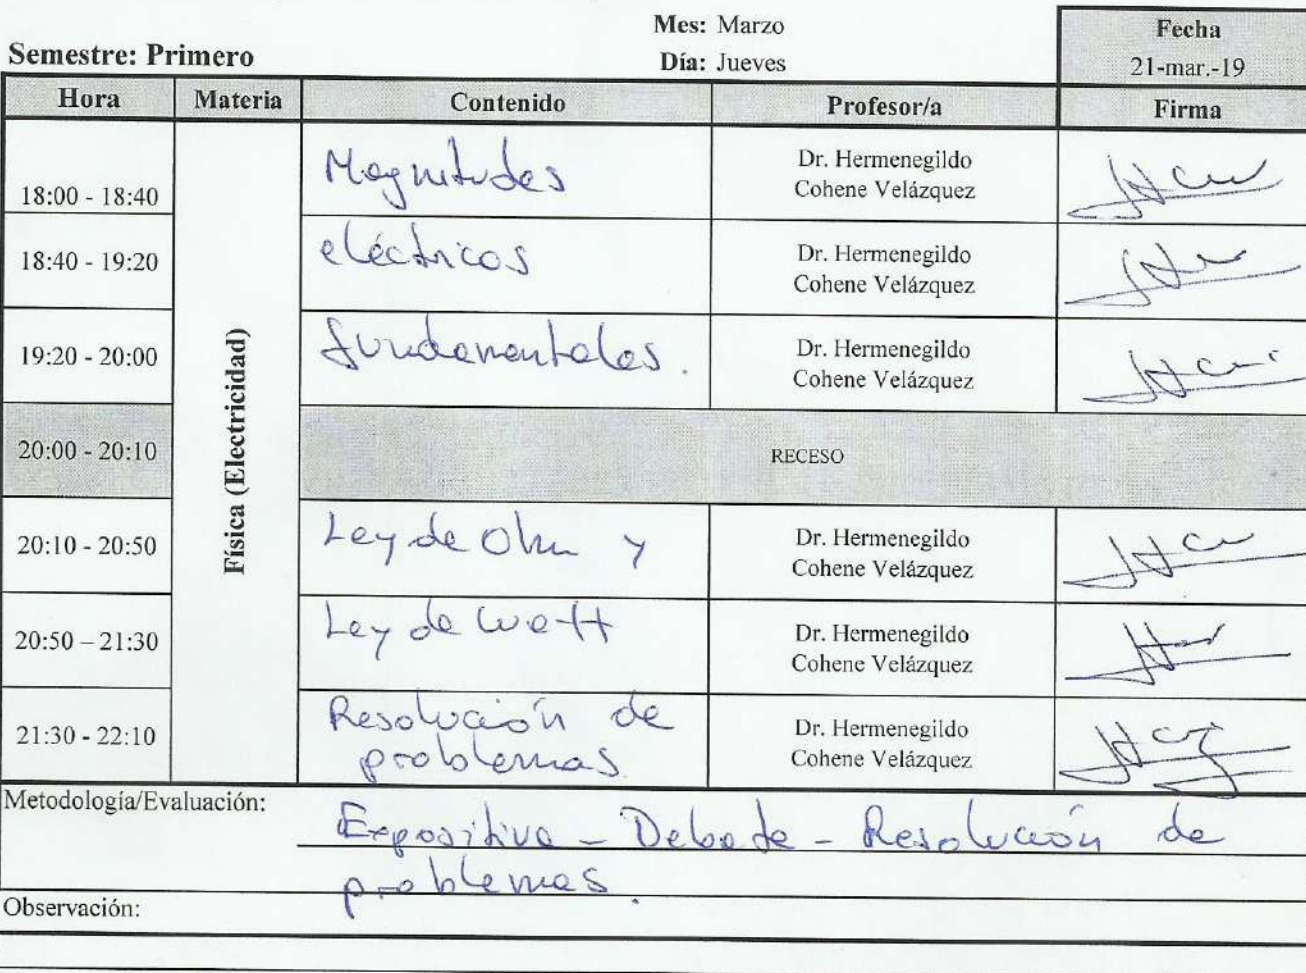 Mes: Marzo
Fecha
Semestre: Primero
Día: Jueves
21-mar.-19
Hora Materia Contenido Profesor/a Firma
18:00 - 18:40 Magnitudes Dr. Hermenegildo
Cohene Velázquez
18:40 - 19:20 eléctricas Dr. Hermenegildo
Cohene Velázquez
19:20 - 20:00 fundamentales. Dr. Hermenegildo
Cohene Velázquez
Física (Electricidad)
20:00 - 20:10 RECESO
20:10 - 20:50 Ley de Ohm y Dr. Hermenegildo
Cohene Velázquez
20:50 – 21:30 Ley de Watt Dr. Hermenegildo
Cohene Velázquez
21:30 - 22:10 Resolución de Dr. Hermenegildo
problemas Cohene Velázquez
Metodología/Evaluación:
Expositiva - Debate - Resolución de
problemas.
Observación: